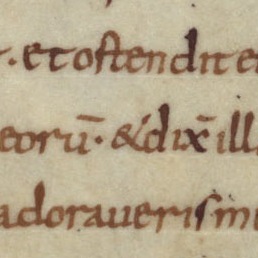 · et ostendit ei
eorū · & dix̄ ill
adoraveris me